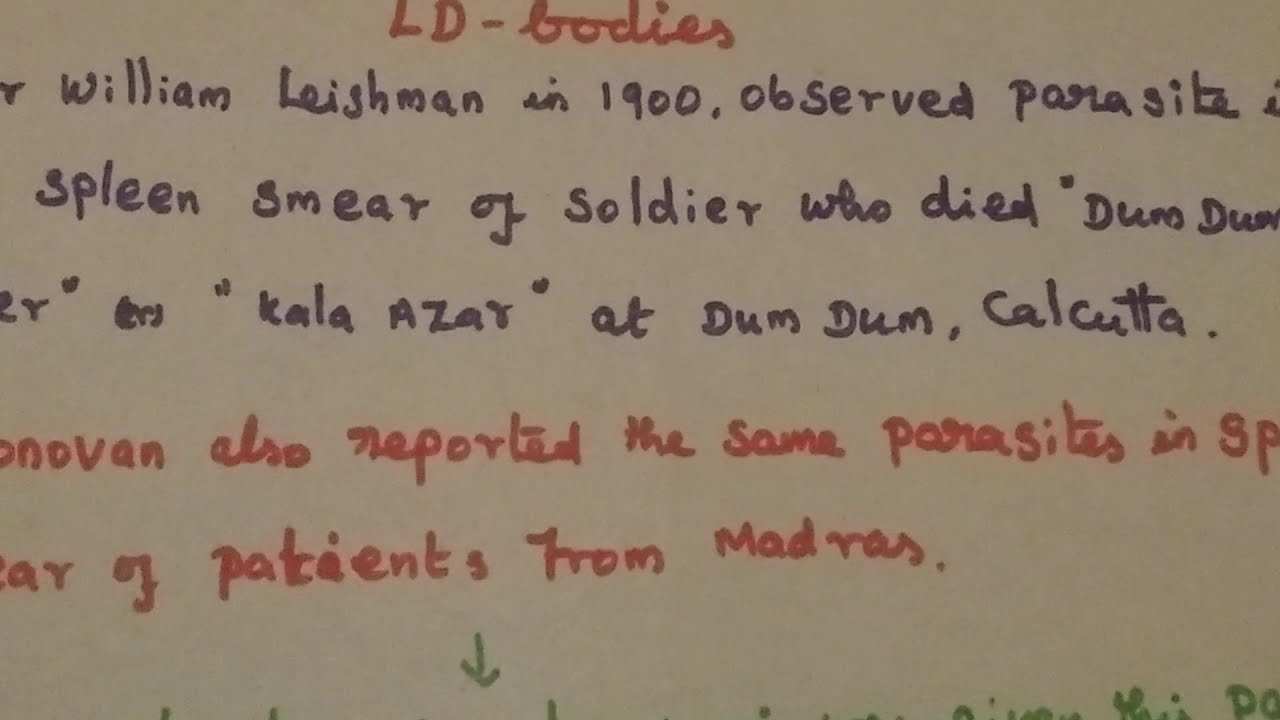 LD-bodies
r William Leishman in 1900, observed parasite i
spleen smear of soldier who died "Dum Dum
er" "Kala Azar" at Dum Dum, Calcutta.
onovan also reported the same parasites in sp
ear of patients from Madras.
↓
given this pa